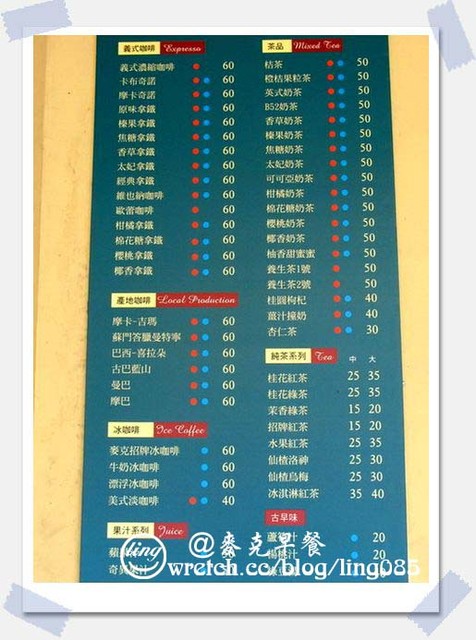 義式咖啡 Expresso
義式濃縮咖啡 60
卡布奇諾 60
摩卡奇諾 60
原味拿鐵 60
榛果拿鐵 60
焦糖拿鐵 60
香草拿鐵 60
太妃拿鐵 60
經典拿鐵 60
維也納咖啡 60
歐蕾咖啡 60
柑橘拿鐵 60
棉花糖拿鐵 60
櫻桃拿鐵 60
椰香拿鐵 60
產地咖啡 Local Production
摩卡-吉瑪 60
蘇門答臘曼特寧 60
巴西-喜拉朵 60
古巴藍山 60
曼巴 60
摩巴 60
冰咖啡 Ice Coffee
麥克招牌冰咖啡 60
牛奶冰咖啡 60
漂浮冰咖啡 60
美式淡咖啡 40
果汁系列 Juice
茶品 Mixed Tea
桔茶 50
橙桔果粒茶 50
英式奶茶 50
B52奶茶 50
香草奶茶 50
榛果奶茶 50
焦糖奶茶 50
太妃奶茶 50
可可亞奶茶 50
柑橘奶茶 50
棉花糖奶茶 50
櫻桃奶茶 50
椰香奶茶 50
柚香甜蜜蜜 50
養生茶1號 50
養生茶2號 50
桂圓枸杞 40
薑汁撞奶 40
杏仁茶 30
純茶系列 Tea 中 大
桂花紅茶 25 35
桂花綠茶 25 35
茉香綠茶 15 20
招牌紅茶 15 20
水果紅茶 25 35
仙楂洛神 25 30
仙楂烏梅 25 30
冰淇淋紅茶 35 40
古早味
20
20
ling @麥克早餐
wretch.cc/blog/ling085